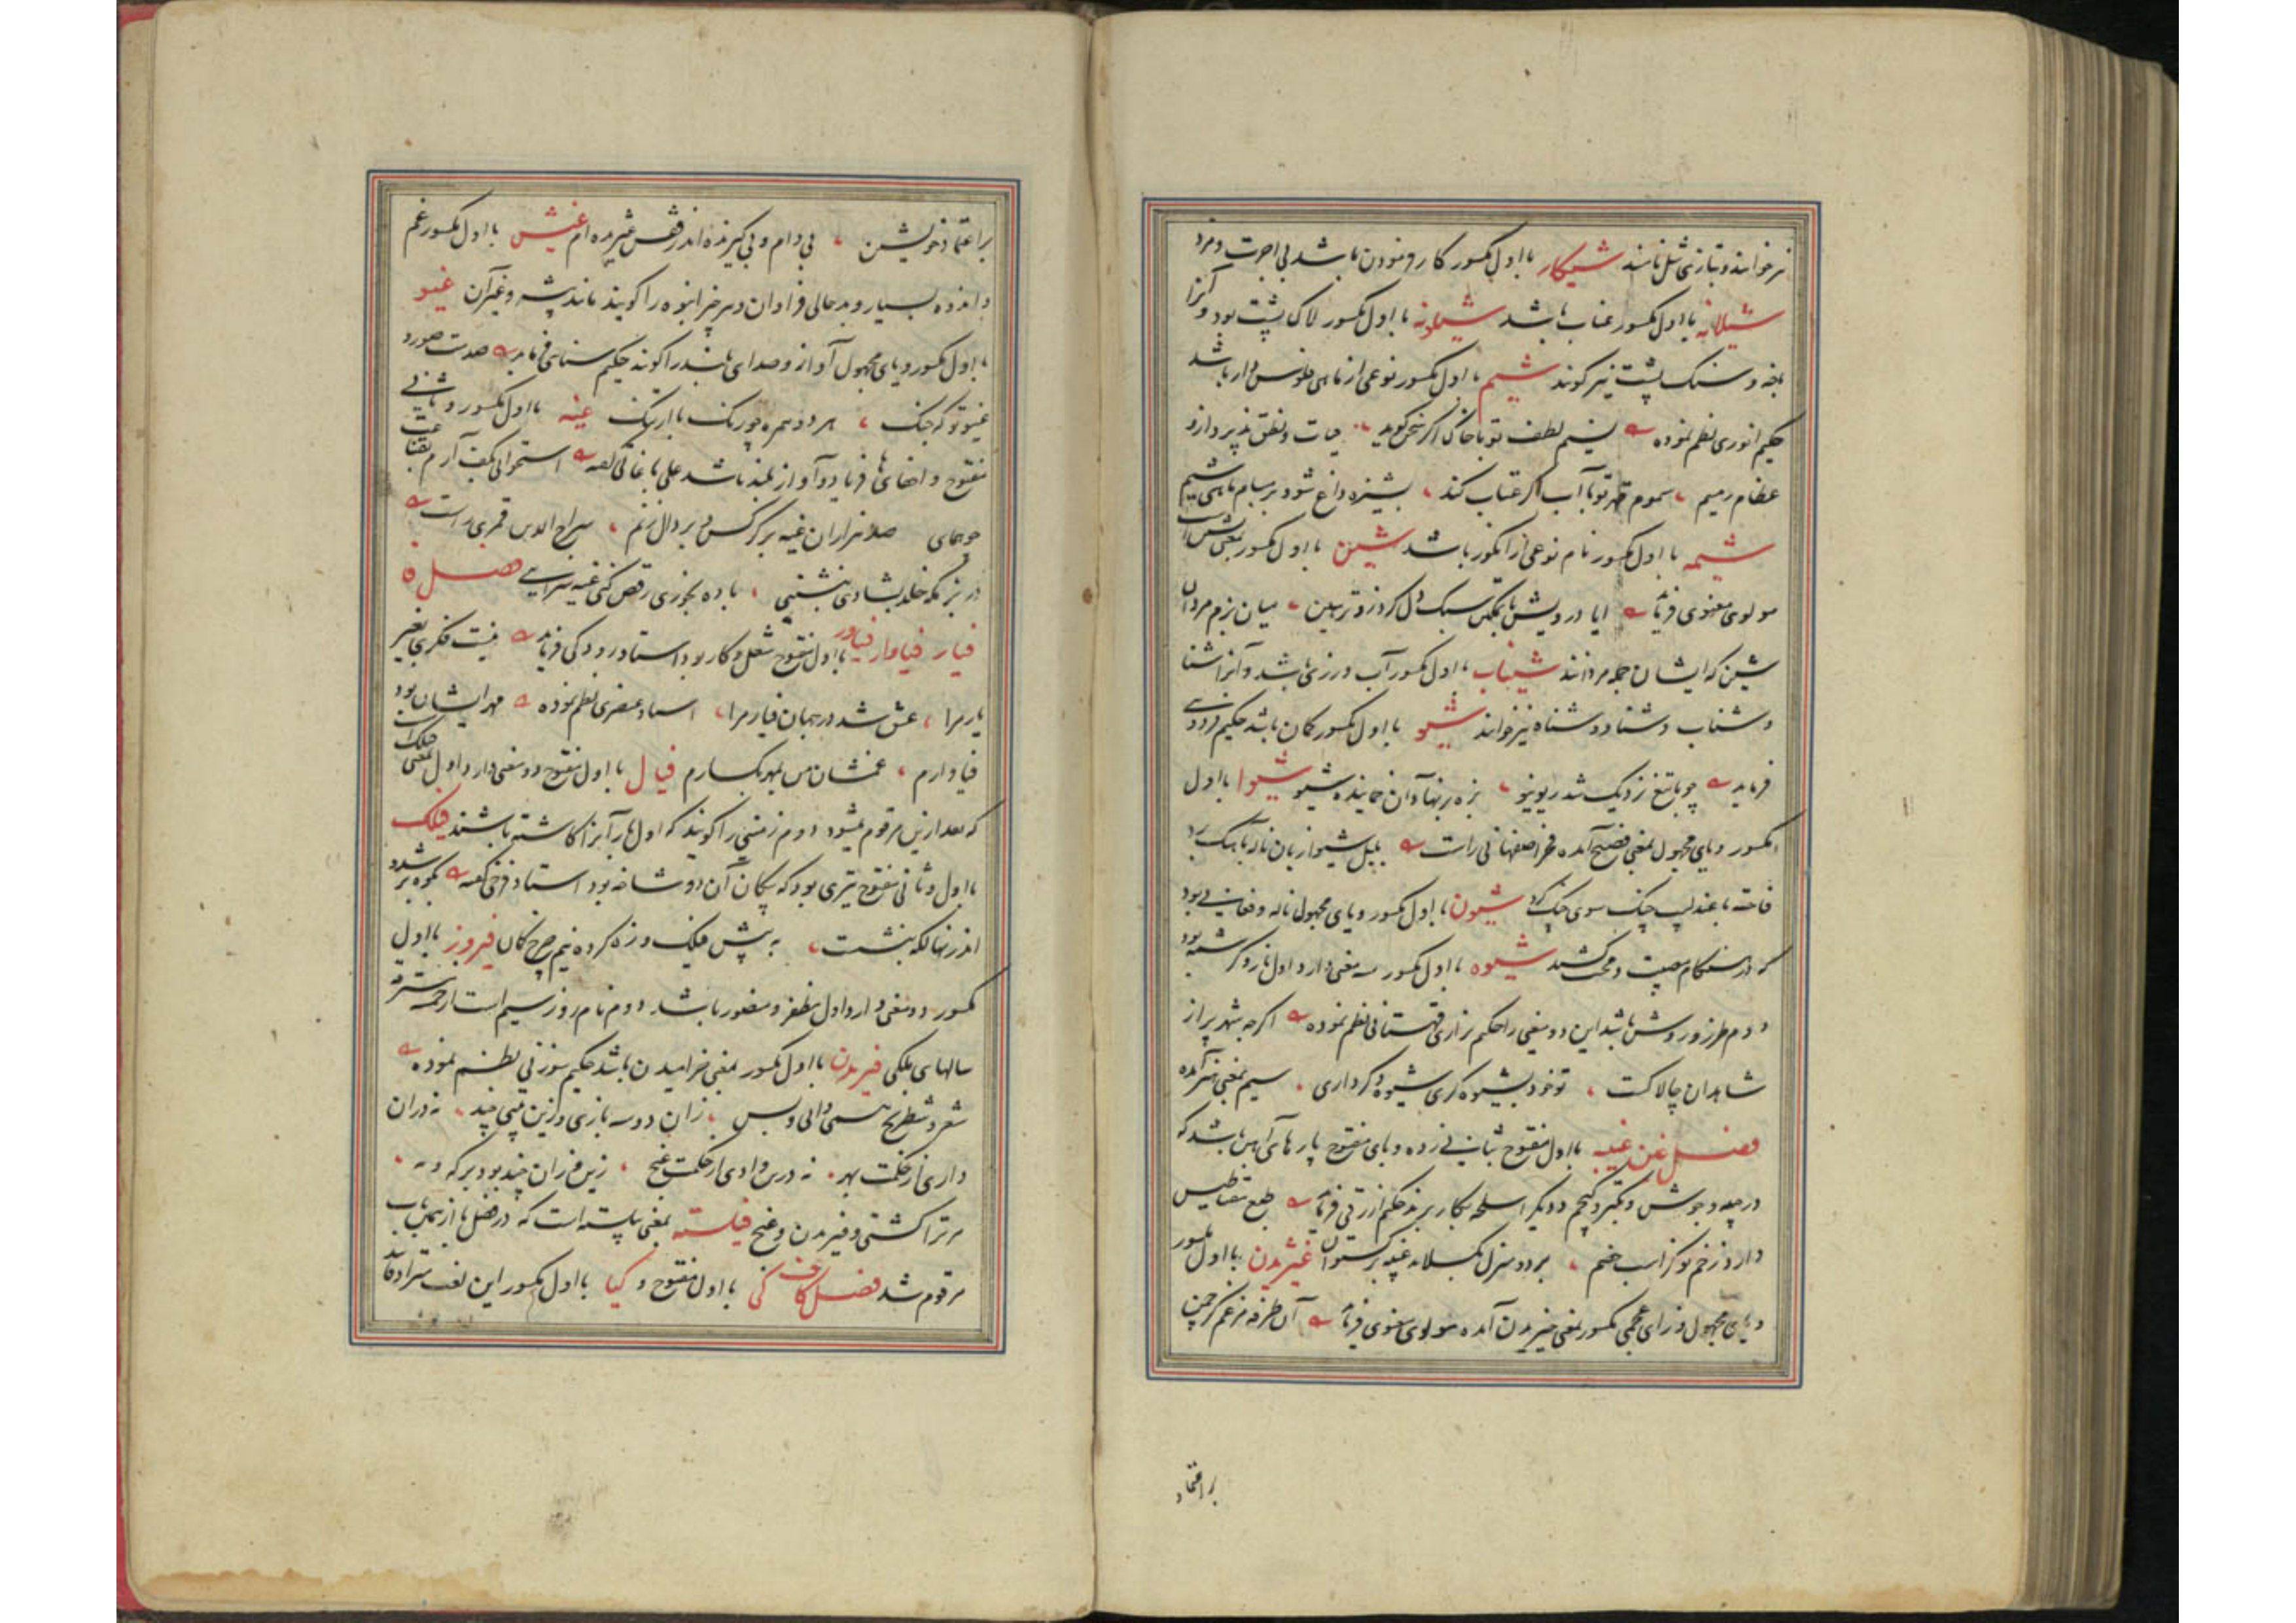 نیز خوانند و بتازی شل نامند شیکار با اول مکسور کار فرمودن باشد بی اجرت و مزد
شیلانه با اول مکسور عناب باشد شیلونه با اول مکسور لاک پشت بود و آنرا
باخه و سنک پشت نیز کویند شیم با اول مکسور نوعی از ماهی فلوس دار باشد
حکیم انوری نظم نموده نسیم لطف تو با خاک اکر سخن کوید حیات و نطق پذیرد ازو
عظام رمیم سموم قهر تو با آب اکر عتاب کند پشیزه داغ شود بر مسام ماهی شیم
شیمه با اول مکسور نام نوعی از انکور باشد شین با اول مکسور بمعنی
مولوی معنوی فرماید ایا درویش با تمکین سبک دل کرد زوتر بین میان بزم مردان
شین که ایشان جمله مردانند شیناب با اول مکسور آب ورزی باشد و آنرا شنا
و شناب و شناو و شناه نیز خوانند شیو با اول مکسور کمان باشد حکیم فردوسی
فرماید چو با تیغ نزدیک شد ریونیو بزه بر نهاد آن خمانیده شیو شیوا با اول
مکسور و یای مجهول بمعنی فصیح آمده فخر اصفهانی راست بلبل شیوا زبان
فاخته با عندلیب چنک سوی چنک کرد شیون با اول مکسور و یای مجهول ناله و فغان بود
که در هنکام مصیبت و محنت کنند شیوه با اول مکسور سه معنی دارد اول ناز و کرشمه بود
دوم طرز و روش باشد این دو معنی را حکیم نزاری قهستانی نظم نموده اکرچه شهر پر از
شاهدان چالاکست تو خود بشیوه کری شیوه دکر داری سیم بمعنی هنر آمده
فصل غین غیبه با اول مفتوح بثانی زده و بای مفتوح پارهای آهن باشد که
در جبه و جوشن و بکتر و کجیم و دیکر اسلحه بکار برند حکیم ازرقی فرماید طبع مقناطیس
دارد زخم تو کز اسب خصم بر دو منزل بکسلاند غیبه برکستوان غیژیدن با اول مکسور
و یای مجهول و زای عجمی مکسور بمعنی خیزیدن آمده مولوی معنوی فرماید آن طرفه مرغم کز چمن
بر اعتماد
بر اعتماد خویشتن بی دام و بی کیرنده اندر قفس غیژیده ام غیش با اول مکسور غم
و اندوه بسیار و بدحالی فراوان و هر چیز انبوه را کویند مانند بیشه و غیر آن غیو
با اول مکسور و یای مجهول آواز و صدای بلند را کویند حکیم سنائی فرماید
غیو تو که جنک هر دو همره چو رنک با ارتنک غیه با اول مکسور و ثانی
مفتوح و اخفای ها فریاد و آواز بلند باشد علی باغانی کفته استخوانی بکف آرم
همای صد هزاران غیه بر کرکس و بر دال زنم سراج الدین قمری راست
در بزمکه خلد بشادی بنشینی باده بخوری رقص کنی غیه سرائی فصل فا
فیار فیاوار فیاور با اول مفتوح شغل و کار بود استاد رودکی فرماید نیست فکری بغیر
یار مرا عشق شد در جهان فیار مرا استاد عنصری نظم نموده مهر ایشان بود
فیاوارم غمشان من بمهر بکسارم فیال با اول مفتوح دو معنی دارد اول بمعنی فیلک است
که بعد ازین مرقوم میشود دوم زمینی را کویند که اول بار آنرا کاشته باشند فیلک
با اول و ثانی مفتوح تیری بود که پیکان آن دو شاخه بود استاد فرخی کفته بکوه بر شد و
اندر نهانکه بنشست به پیش فیلک و زه کرده نیم چرخ کمان فیروز با اول
مکسور دو معنی دارد اول مظفر و منصور باشد دوم نام روز سیم است از خمسه مسترقه
سالهای ملکی فیریدن با اول مکسور بمعنی خرامیدن باشد حکیم سوزنی نظم نموده
شعر و شطرنج همی دانی و بس زان دو سه بازی و زین بیتی چند نه دران
داری از حکمت بهر نه درین دادی از حکمت غنج
مر ترا کشتی و فیریدن و غنج فیلسته بمعنی پیلسته است که در فصل با از همین باب
مرقوم شد فصل کاف کی با اول مفتوح و کیا با اول مکسور این لغت مترادفات